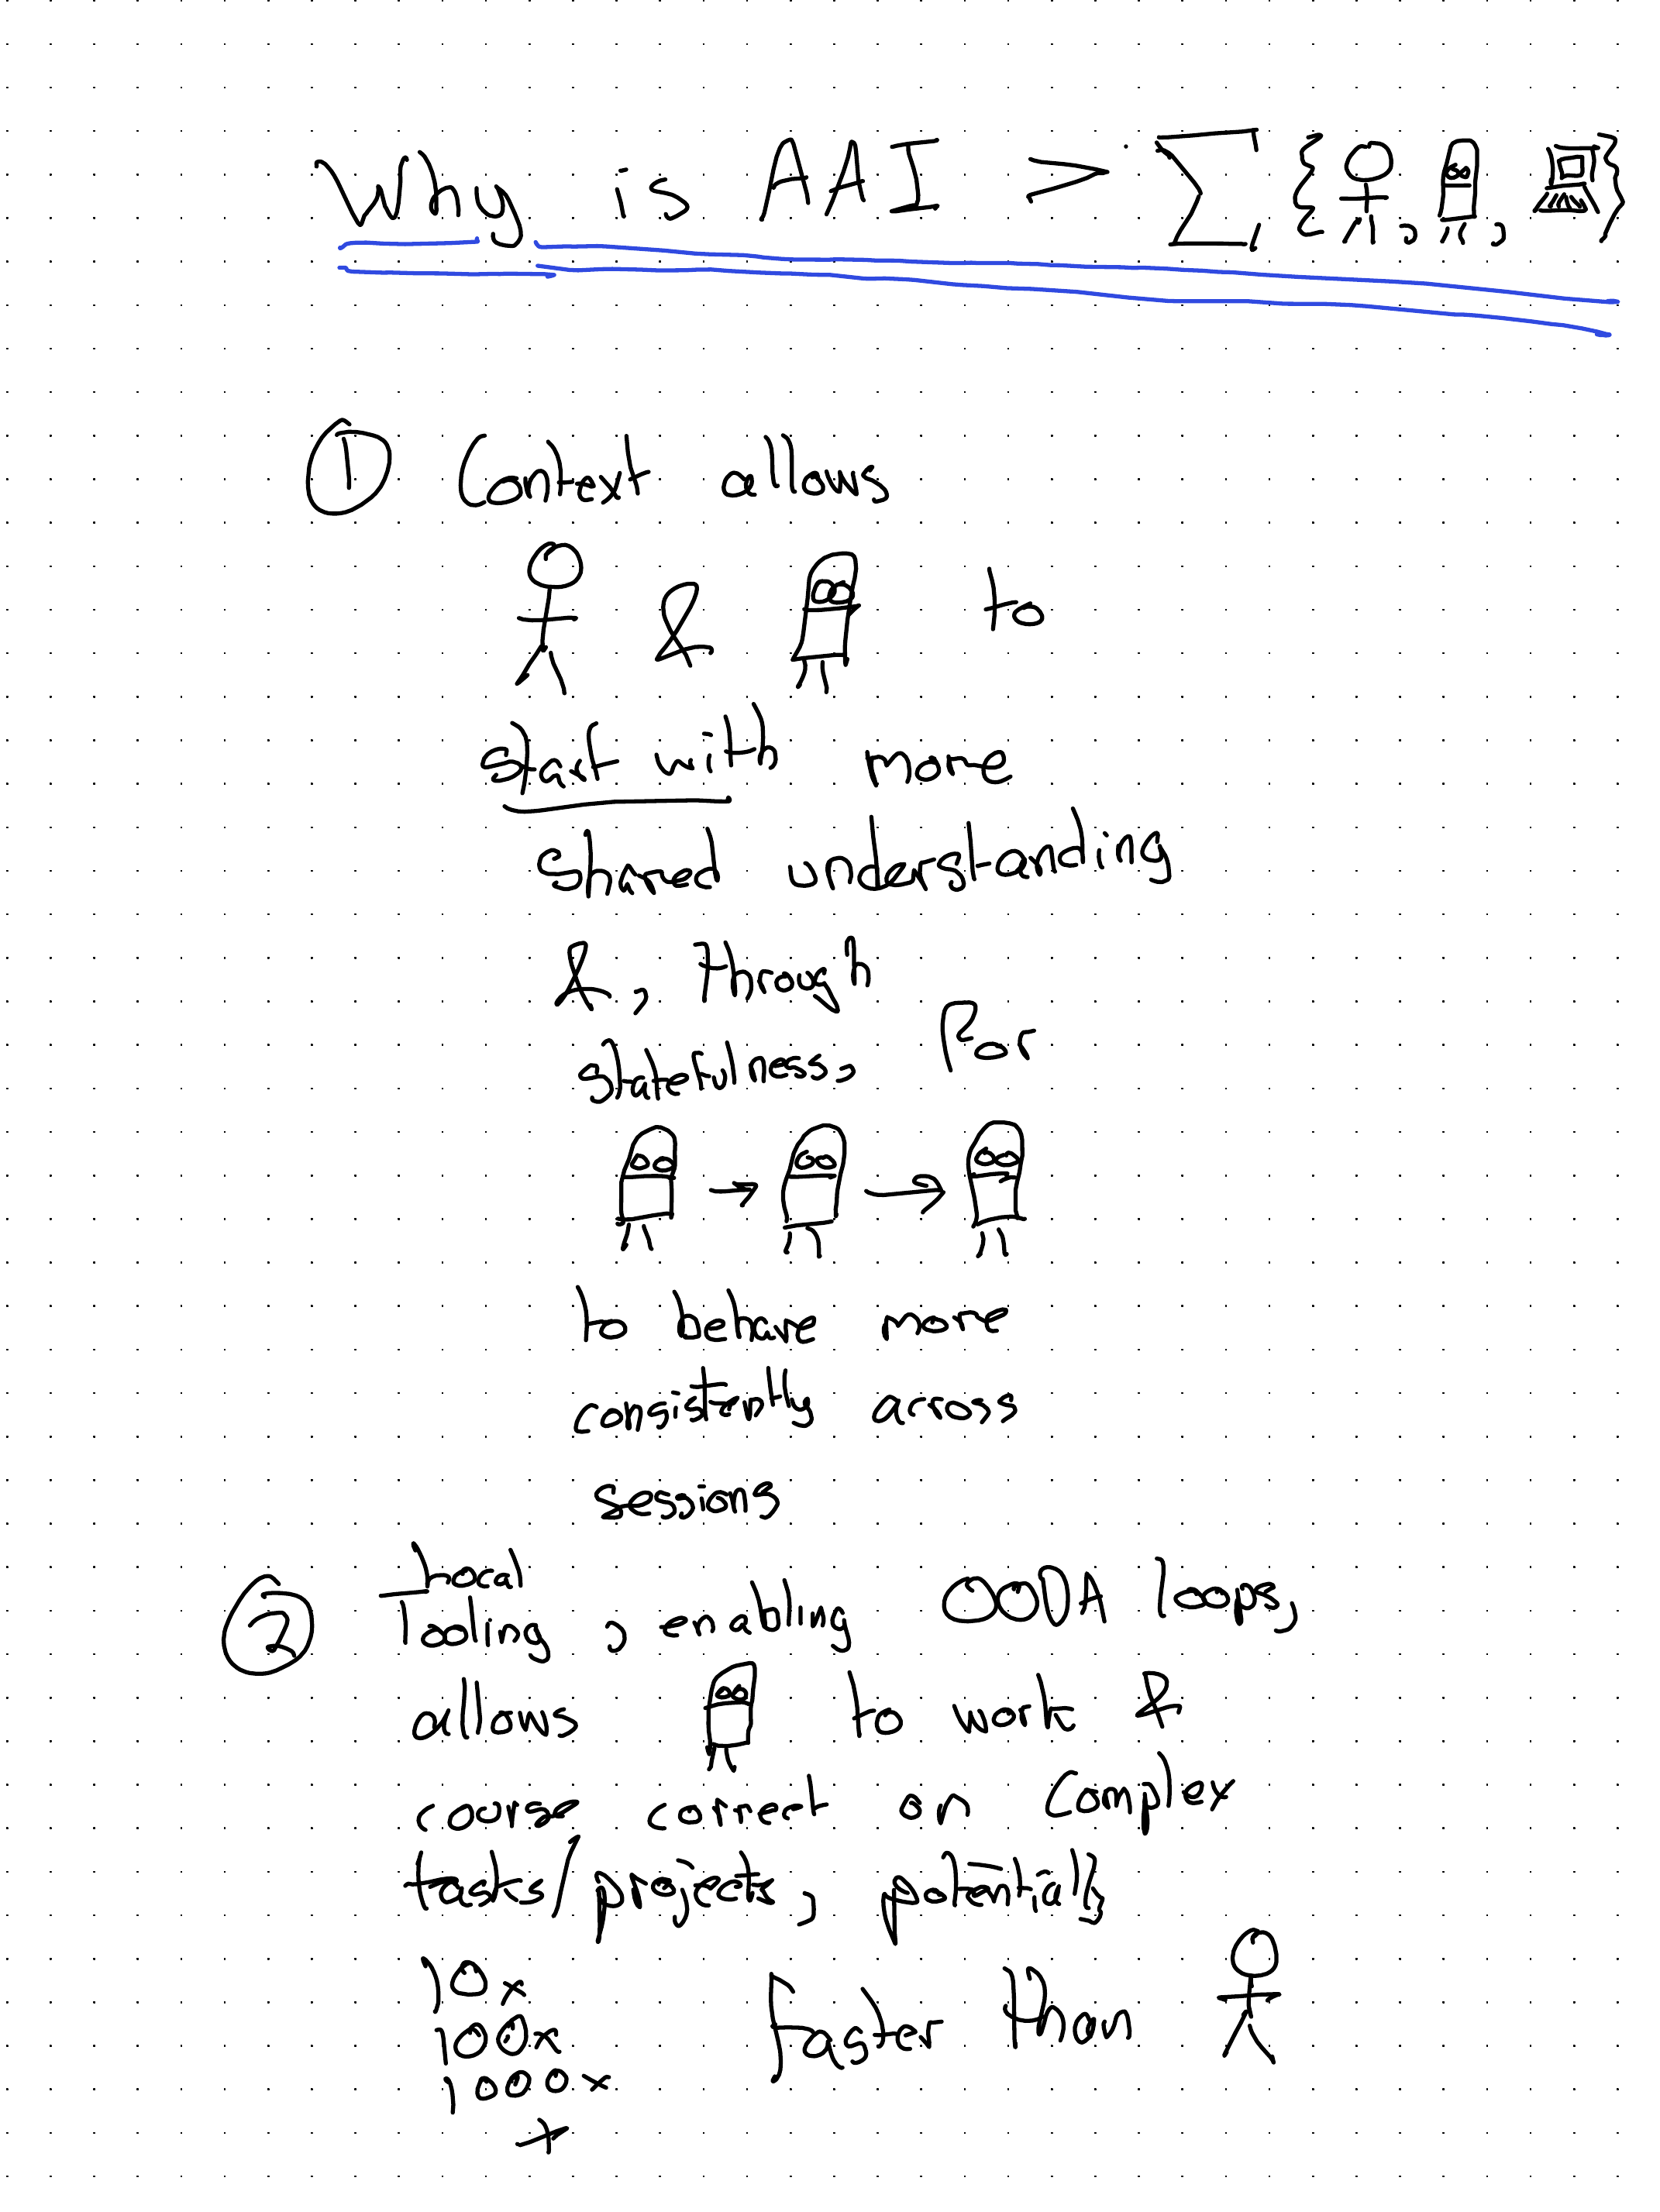 Why is AAI > ∑ { , , }
① Context allows
& to
start with more
shared understanding
&, through
statefulness, for
→ →
to behave more
consistently across
sessions
② Local
Tooling, enabling OODA loops,
allows to work &
course correct on complex
tasks/projects, potentially
10x
100x faster than
1000x
+